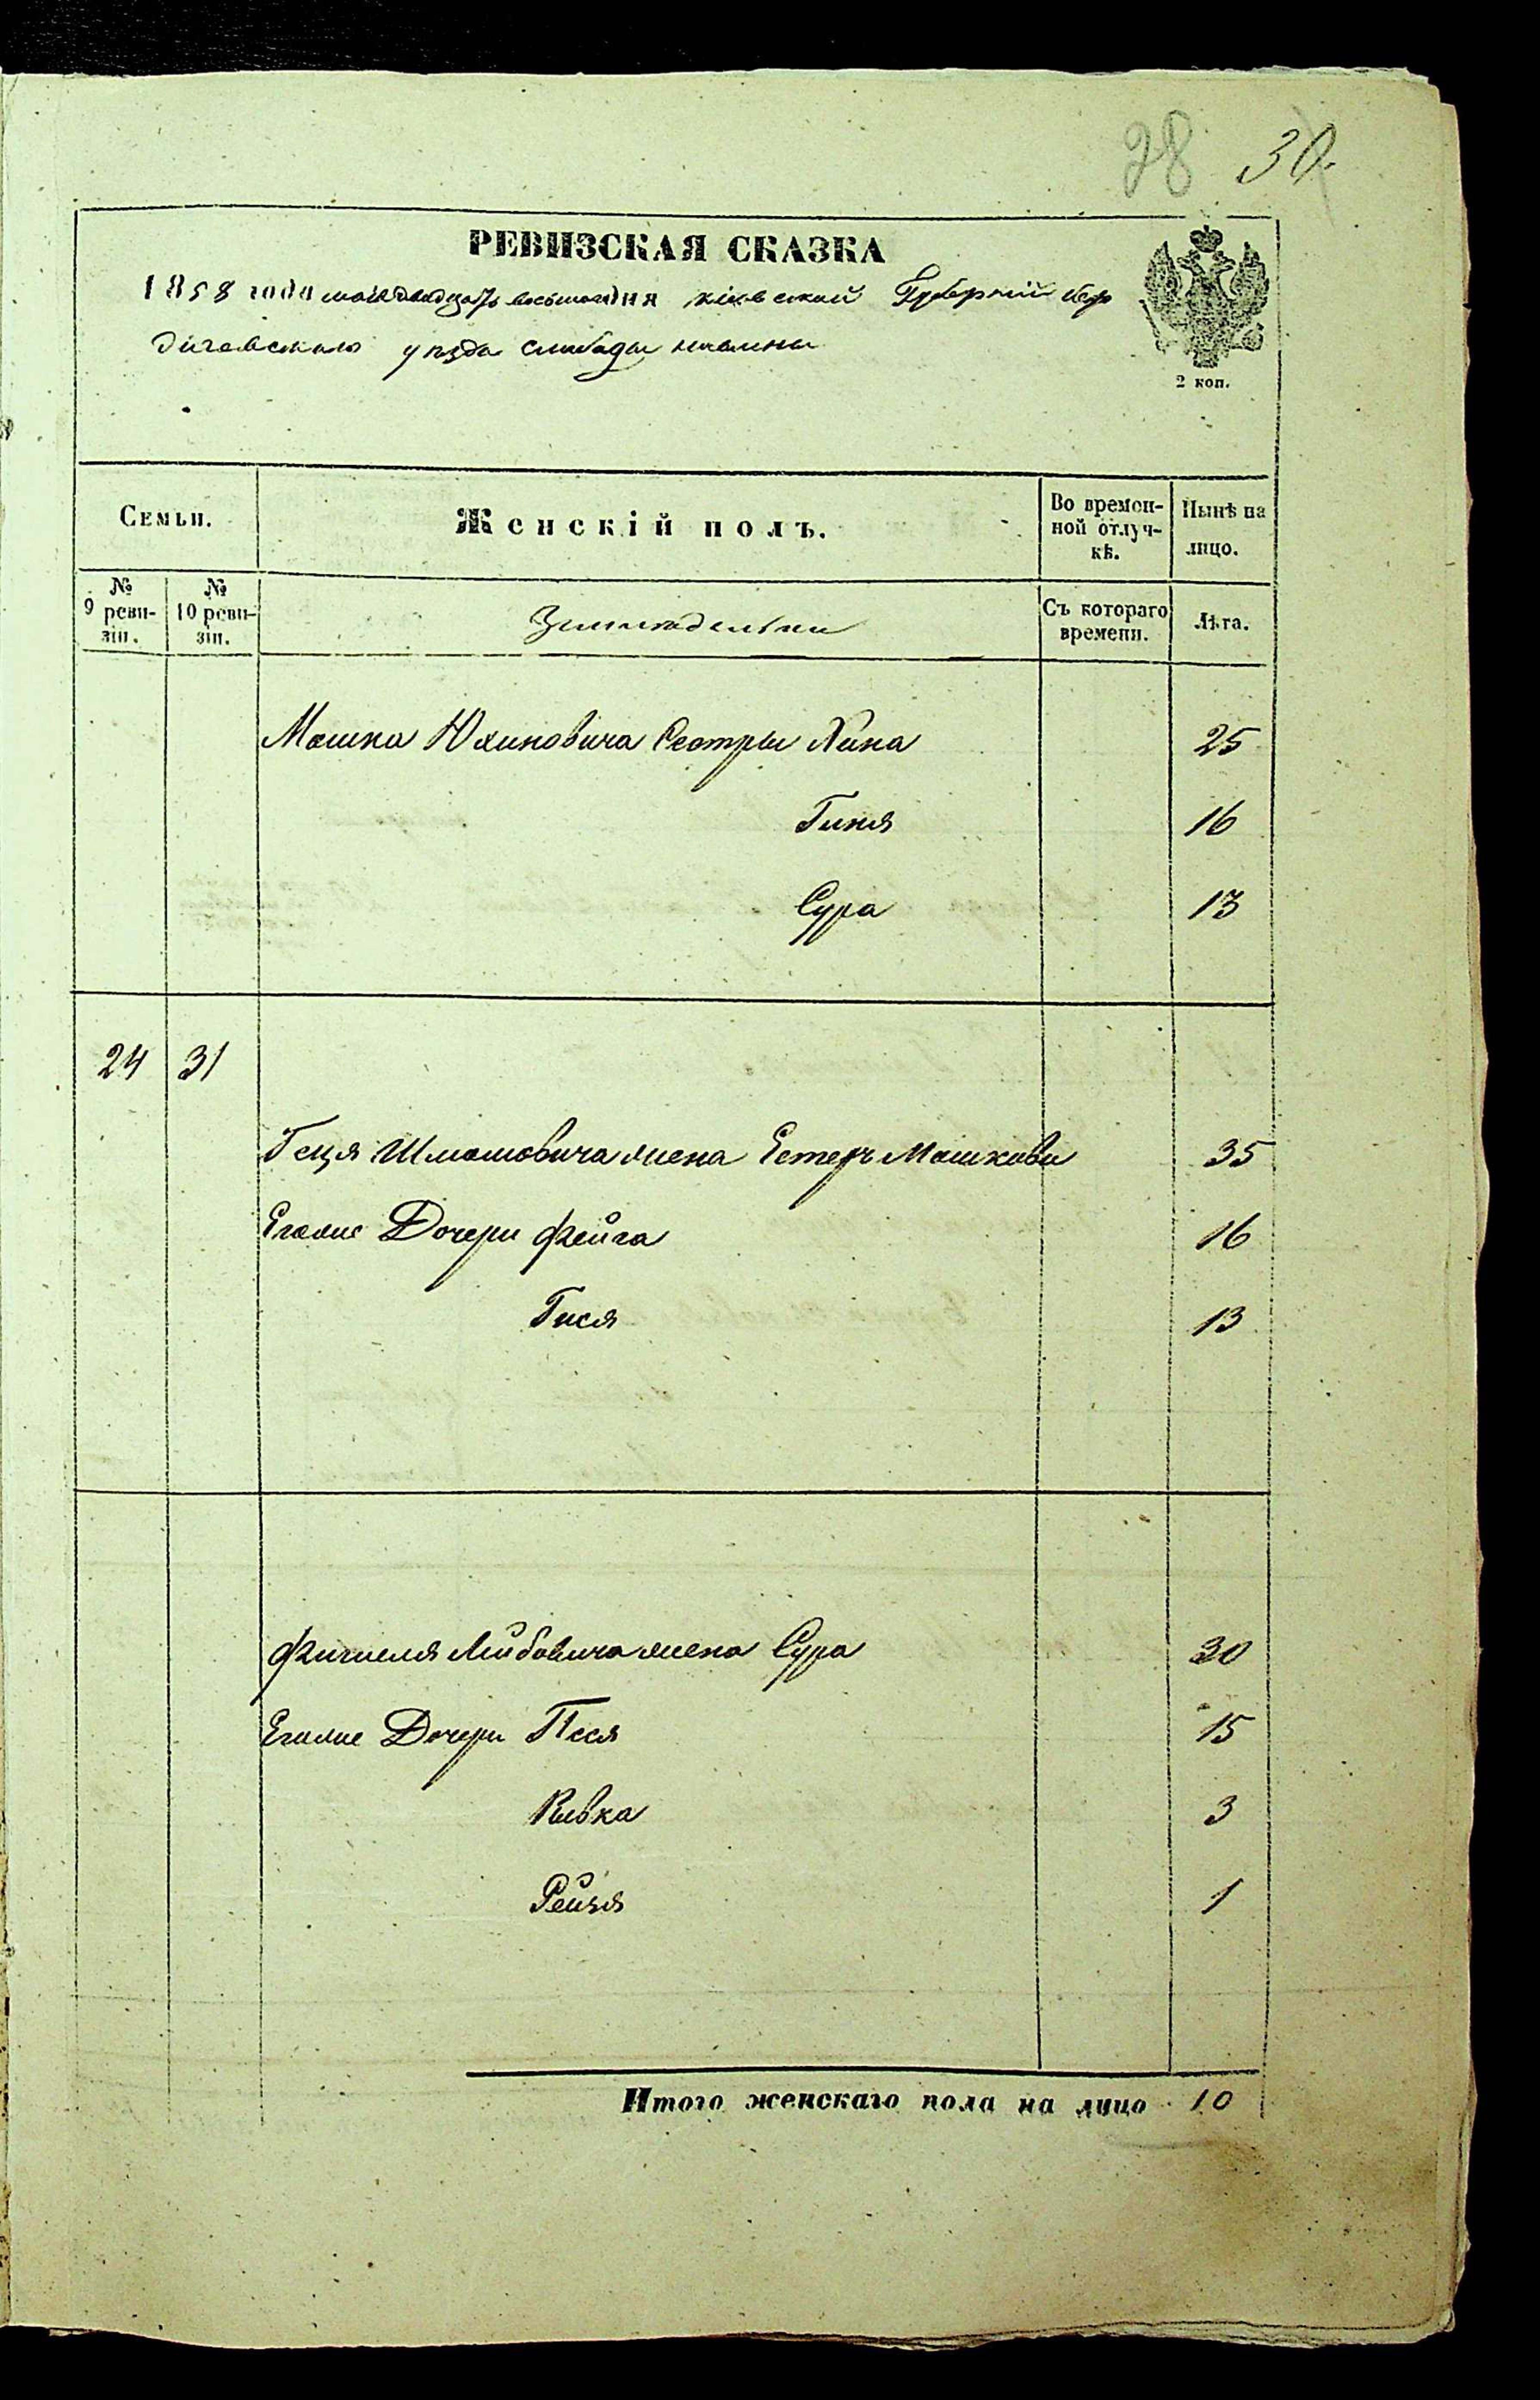 28 30.
РЕВИЗСКАЯ СКАЗКА
1858 года мая двадцать восьмого дня кіевской Губерніи бер
дичевского уезда слободы
2 коп.
Семьи.
Женскій полъ.
Во времен-
ной отлуч-
кѣ.
Нынѣ на
лицо.
№
9 реви-
зіи.
№
10 реви-
зіи.
Съ котораго
времени.
Лѣта.
Мошка Сестры Хина 25
Гиня 16
Сура 13
24 31
Геця Шмоиовича жена Естеръ Мошкова 35
Еговие Дочери Фейга 16
Гися 13
Фишеля Лейбовича жена Сура 30
Еговие Дочери Песя 15
Ривка 3
Рейзя 1
Итого женскаго пола на лицо 10